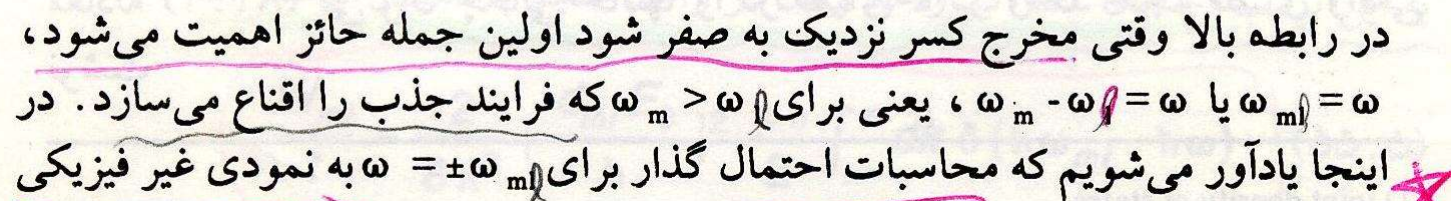 در رابطه بالا وقتی مخرج کسر نزدیک به صفر شود اولین جمله حائز اهمیت می‌شود،
ω = ω_ml یا ω = ω_m - ω_l ، یعنی برای ω_m > ω_l که فرایند جذب را اقناع می‌سازد. در
اینجا یادآور می‌شویم که محاسبات احتمال گذار برای ω = ±ω_ml به نمودی غیر فیزیکی